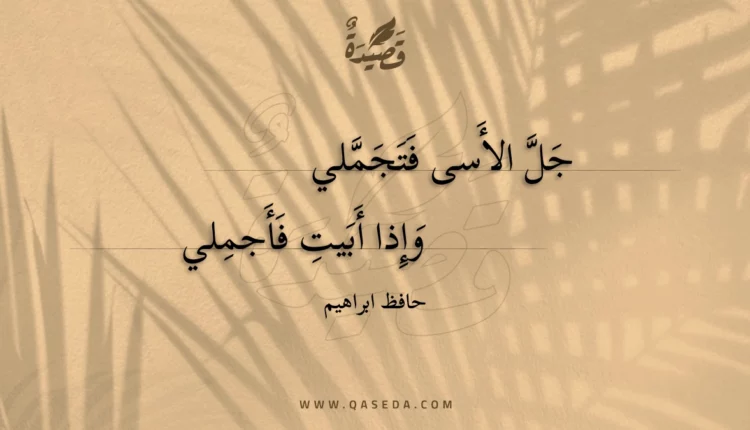 قَصِيدَةٌ
جَلَّ الأَسى فَتَجَمَّلي
وَإِذا أَبَيتِ فَأَجمِلي
حافظ ابراهيم
WWW.QASEDA.COM